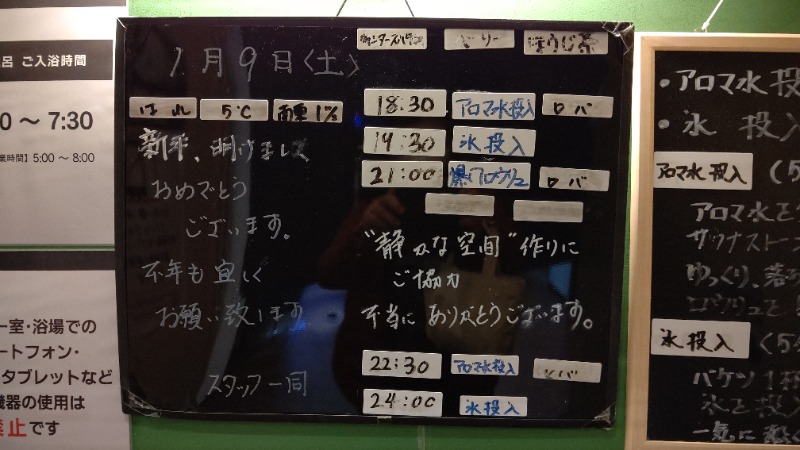 呂 ご入浴時間
0 ～ 7:30
業時間】5:00 ～ 8:00
ー室・浴場での
ートフォン・
タブレットなど
機器の使用は
禁止です
ほうじ茶
1月9日〈土〉
はれ 5℃ 雨雲 1%
新年、明けまして
おめでとう
ございます。
不年も宜しく
お願い致します
スタッフ一同
18:30 アロマ水投入 ロバ
19:30 氷投入
21:00 爆ロウリュ ロバ
"静かな空間"作りに
ご協力
不当にありがとうございます。
22:30 アロマ水投入
24:00 氷投入
・アロマ水投
・氷 投入
アロマ水投入 (5
アロマ水を
サウナストー
ゆっくり、落
ロウリュで
氷投入 (5
バケツ1杯
氷を投入
一気に